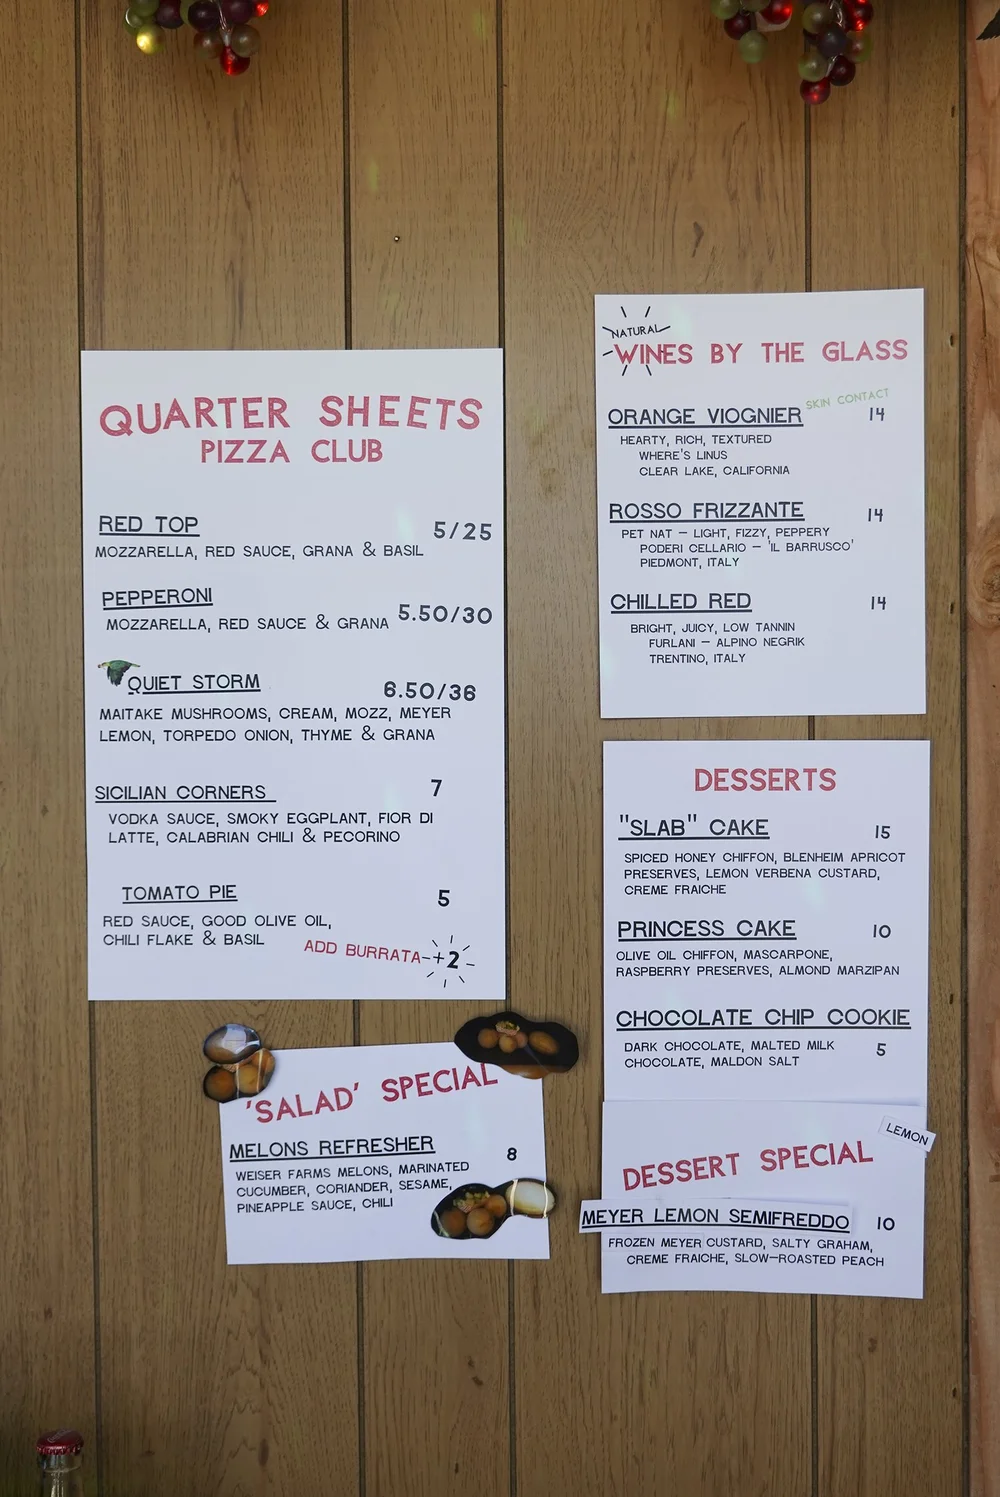 QUARTER SHEETS
PIZZA CLUB
RED TOP
5/25
MOZZARELLA, RED SAUCE, GRANA & BASIL
PEPPERONI
5.50/30
MOZZARELLA, RED SAUCE & GRANA
QUIET STORM
6.50/36
MAITAKE MUSHROOMS, CREAM, MOZZ, MEYER
LEMON, TORPEDO ONION, THYME & GRANA
SICILIAN CORNERS
7
VODKA SAUCE, SMOKY EGGPLANT, FIOR DI
LATTE, CALABRIAN CHILI & PECORINO
TOMATO PIE
5
RED SAUCE, GOOD OLIVE OIL,
CHILI FLAKE & BASIL
ADD BURRATA-+2
'SALAD' SPECIAL
MELONS REFRESHER
8
WEISER FARMS MELONS, MARINATED
CUCUMBER, CORIANDER, SESAME,
PINEAPPLE SAUCE, CHILI
NATURAL
WINES BY THE GLASS
SKIN CONTACT
ORANGE VIOGNIER
14
HEARTY, RICH, TEXTURED
WHERE'S LINUS
CLEAR LAKE, CALIFORNIA
ROSSO FRIZZANTE
14
PET NAT - LIGHT, FIZZY, PEPPERY
PODERI CELLARIO - 'IL BARRUSCO'
PIEDMONT, ITALY
CHILLED RED
14
BRIGHT, JUICY, LOW TANNIN
FURLANI - ALPINO NEGRIK
TRENTINO, ITALY
DESSERTS
"SLAB" CAKE
15
SPICED HONEY CHIFFON, BLENHEIM APRICOT
PRESERVES, LEMON VERBENA CUSTARD,
CREME FRAICHE
PRINCESS CAKE
10
OLIVE OIL CHIFFON, MASCARPONE,
RASPBERRY PRESERVES, ALMOND MARZIPAN
CHOCOLATE CHIP COOKIE
DARK CHOCOLATE, MALTED MILK
5
CHOCOLATE, MALDON SALT
LEMON
DESSERT SPECIAL
MEYER LEMON SEMIFREDDO
10
FROZEN MEYER CUSTARD, SALTY GRAHAM,
CREME FRAICHE, SLOW-ROASTED PEACH